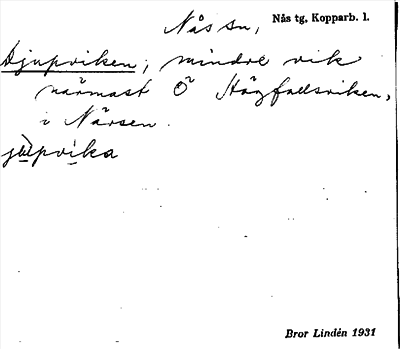 Nås sn, Nås tg, Kopparb. l.
Djupviken, mindre vik
närmast Ö Högfallsviken,
i Närsen.
jupvika
Bror Lindén 1931